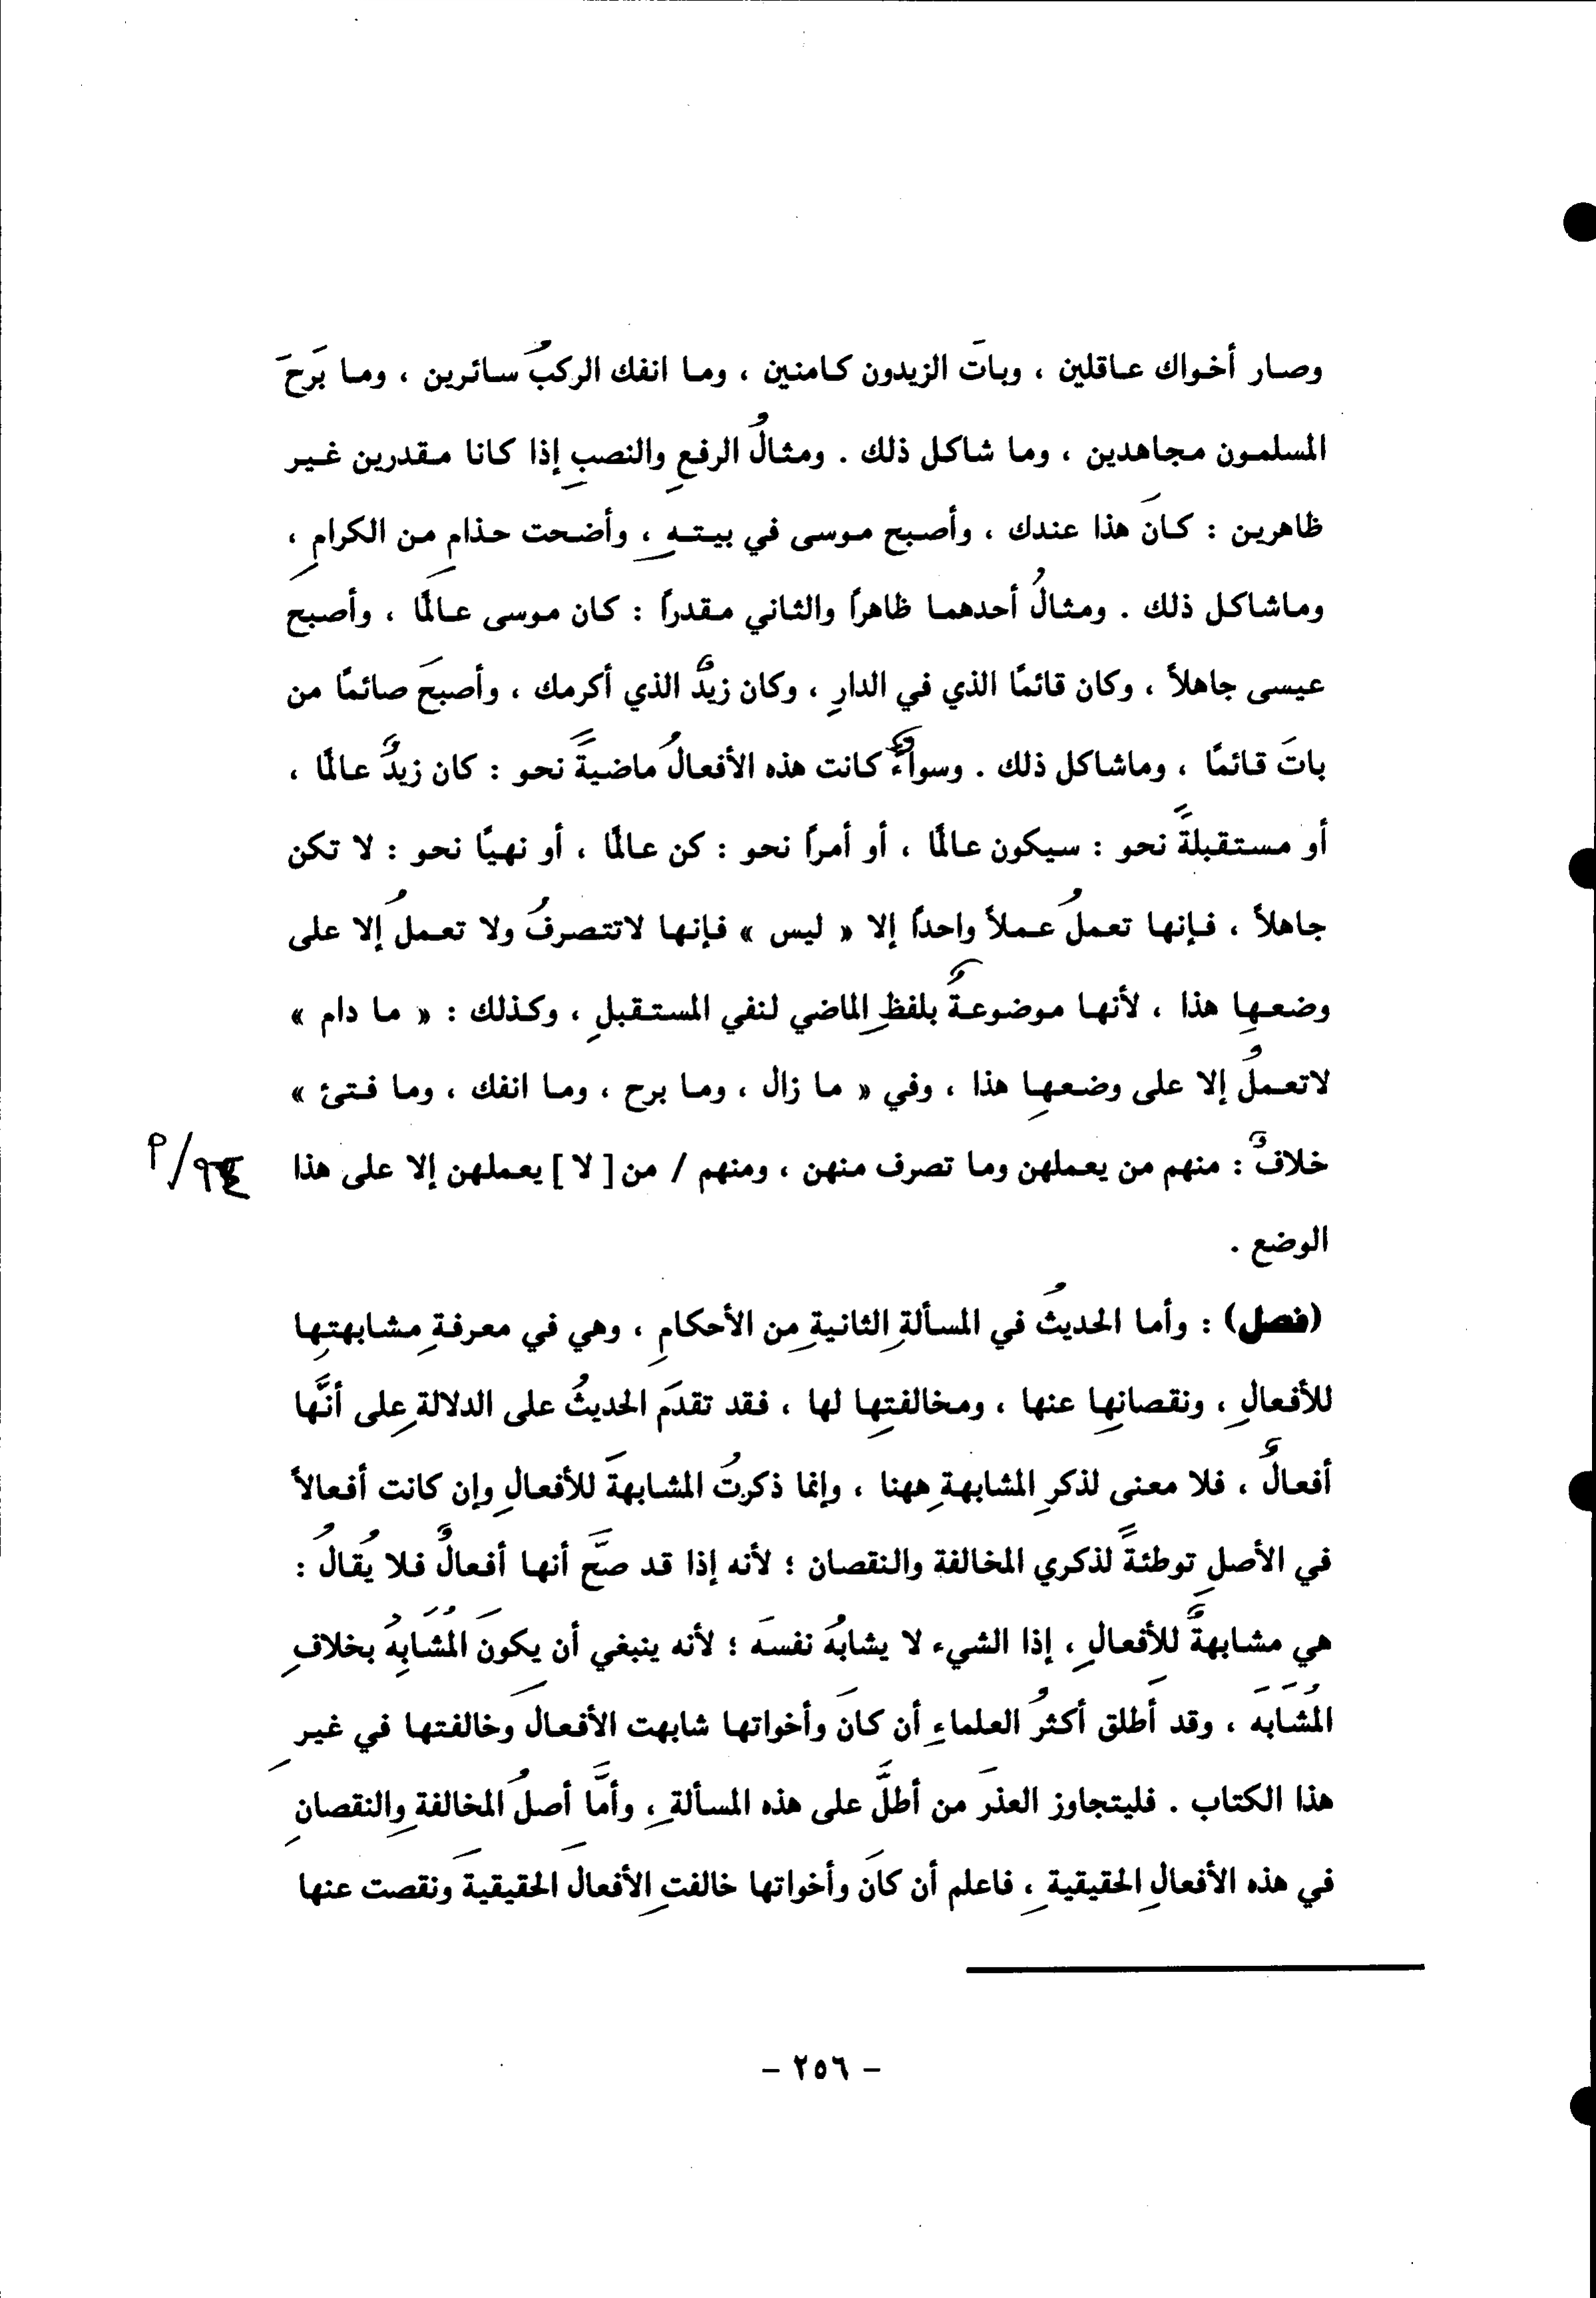 وصار أخواك عاقلين ، وباتَ الزيدون كامنين ، وما انفك الركبُ سائرين ، وما بَرحَ
المسلمون مجاهدين ، وما شاكل ذلك . ومثالُ الرفعِ والنصبِ إذا كانا مقدرين غير
ظاهرين : كانَ هذا عندك ، وأصبح موسى في بيتهِ ، وأضحت حذامِ من الكرامِ ،
وماشاكل ذلك . ومثالُ أحدهما ظاهراً والثاني مقدراً : كان موسى عالمًا ، وأصبح
عيسى جاهلاً ، وكان قائمًا الذي في الدارِ ، وكان زيدٌ الذي أكرمك ، وأصبحَ صائمًا من
باتَ قائمًا ، وماشاكل ذلك . وسواءٌ كانت هذه الأفعالُ ماضيةً نحو : كان زيدٌ عالمًا ،
أو مستقبلةً نحو : سيكون عالمًا ، أو أمراً نحو : كن عالمًا ، أو نهيًا نحو : لا تكن
جاهلاً ، فإنها تعملُ عملاً واحداً إلا « ليس » فإنها لاتتصرفُ ولا تعملُ إلا على
وضعِها هذا ، لأنها موضوعةٌ بلفظِ الماضي لنفي المستقبلِ ، وكذلك : « ما دام »
لاتعملُ إلا على وضعِها هذا ، وفي « ما زال ، وما برح ، وما انفك ، وما فتئ »
خلافٌ : منهم من يعملهن وما تصرف منهن ، ومنهم / من [ لا ] يعملهن إلا على هذا
الوضع .
(فصل) : وأما الحديثُ في المسألةِ الثانيةِ من الأحكامِ ، وهي في معرفةِ مشابهتِها
للأفعالِ ، ونقصانِها عنها ، ومخالفتِها لها ، فقد تقدَم الحديثُ على الدلالةِ على أنَّها
أفعالٌ ، فلا معنى لذكرِ المشابهةِ ههنا ، وإنما ذكرتُ المشابهةَ للأفعالِ وإن كانت أفعالاً
في الأصلِ توطئةً لذكري المخالفة والنقصان ؛ لأنه إذا قد صحَّ أنها أفعالٌ فلا يُقالُ :
هي مشابهةٌ للأفعالِ ، إذا الشيء لا يشابهُ نفسَه ؛ لأنه ينبغي أن يكونَ المُشَابِهُ بخلافِ
المُشَابَه ، وقد أَطلق أكثرُ العلماءِ أن كانَ وأخواتها شابهت الأفعالَ وخالفتها في غيرِ
هذا الكتاب . فليتجاوز العذرَ من أطلَّ على هذه المسألةِ ، وأمَّا أصلُ المخالفةِ والنقصانِ
في هذه الأفعالِ الحقيقيةِ ، فاعلم أن كانَ وأخواتها خالفتِ الأفعالَ الحقيقيةَ ونقصت عنها
- ٢٥٦ -